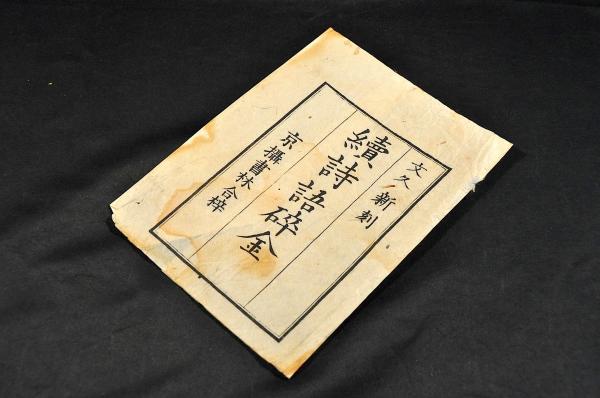 文久新刻
續詩語碎金
京攝書林合梓